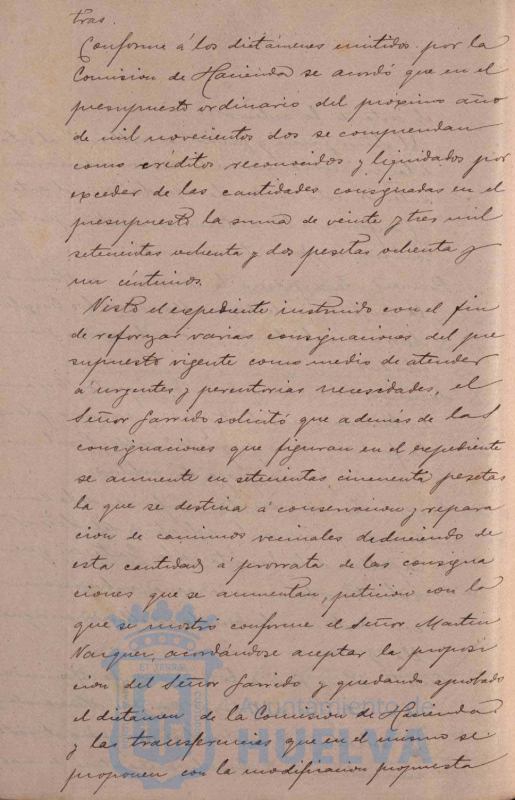 tras.
Conforme á los dictámenes emitidos por la
Comision de Hacienda se acordó que en el
presupuesto ordinario del proximo año
de mil novecientos dos se comprendan
como créditos reconocidos y liquidados por
exceder de las cantidades consignadas en el
presupuesto la suma de veinte y tres mil
setecientas ochenta y dos pesetas ochenta y
un céntimos.
Visto el expediente instruido con el fin
de reforzar varias consignaciones del pre
supuesto vigente como medio de atender
á urgentes y perentorias necesidades, el
Señor Garrido solicitó que además de las
consignaciones que figuran en el expediente
se aumente en setecientas cincuenta pesetas
la que se destina á conservacion y repara
cion de caminos vecinales deduciendo de
esta cantidad á prorrata de las consigna
ciones que se aumentan, peticion con la
que se mostró conforme el Señor Martin
Vazquez, acordándose aceptar la proposi
cion del Señor Garrido y quedando aprobado
el dictámen de la Comision de Hacienda
y las transferencias que en el mismo se
proponen con la modificacion propuesta
Ayuntamiento de
HUELVA